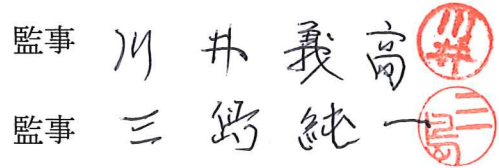 監事 川井義高 川井
監事 三島純一 三島